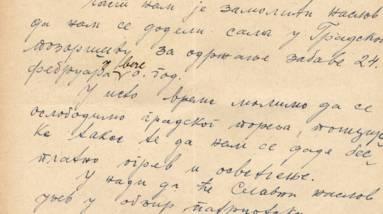 част нам је замолити наслов
да нам се додели сала у Градском
позоришту за одржање забаве 24.
фебруара у вече о. год.
У исто време молимо да се
ослободимо градског пореза,
као и такse те да нам се даде бес
платно огрев и осветлење.
У нади да ће Славни наслов
узети у обзир